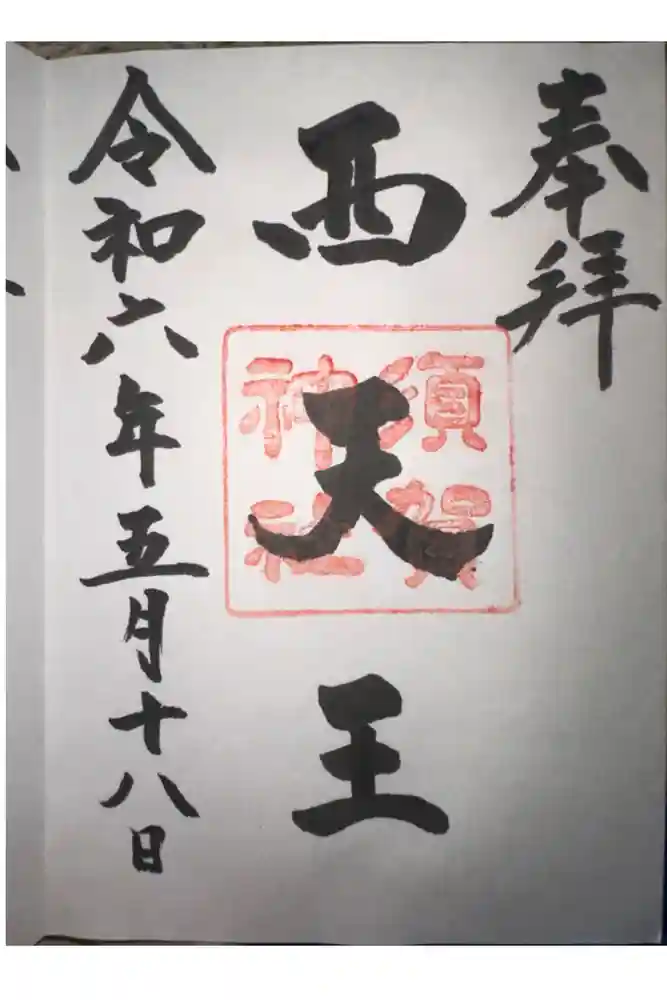 奉拝
西天王
須賀
神社
令和六年五月十八日